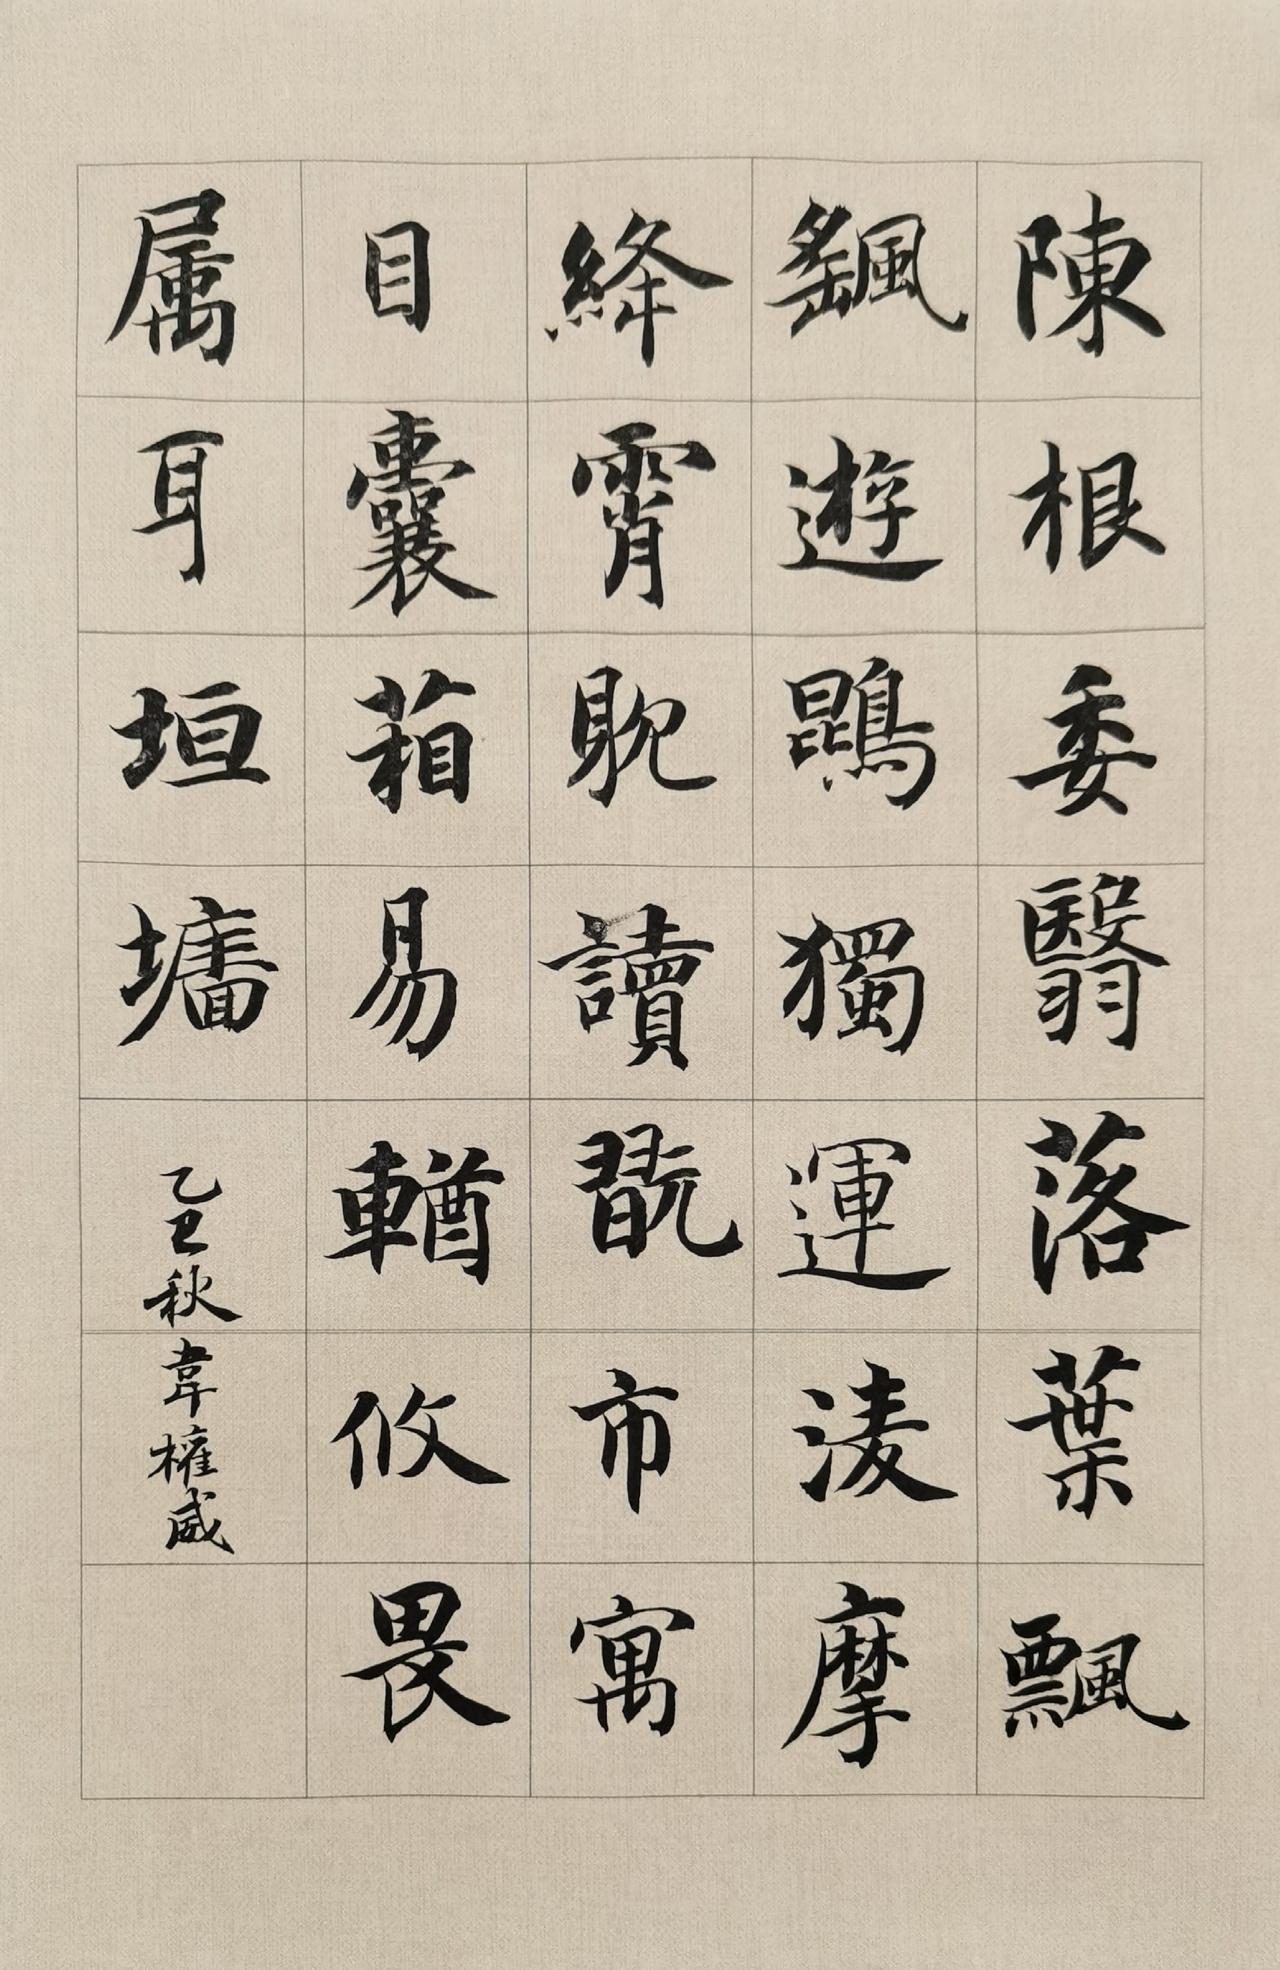 陳根委翳落葉飄
飖遊鵾獨運淩摩
絳霄耽讀翫市寓
目囊葙易輶攸畏
属耳垣墻
乙巳秋韋權威